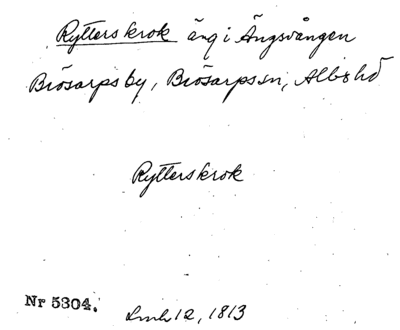 Rytterskrok äng i Ängsvången
Brösarps by, Brösarps sn, Albo hd
Rytterskrok
Nr 5304.
Lmh 12, 1813